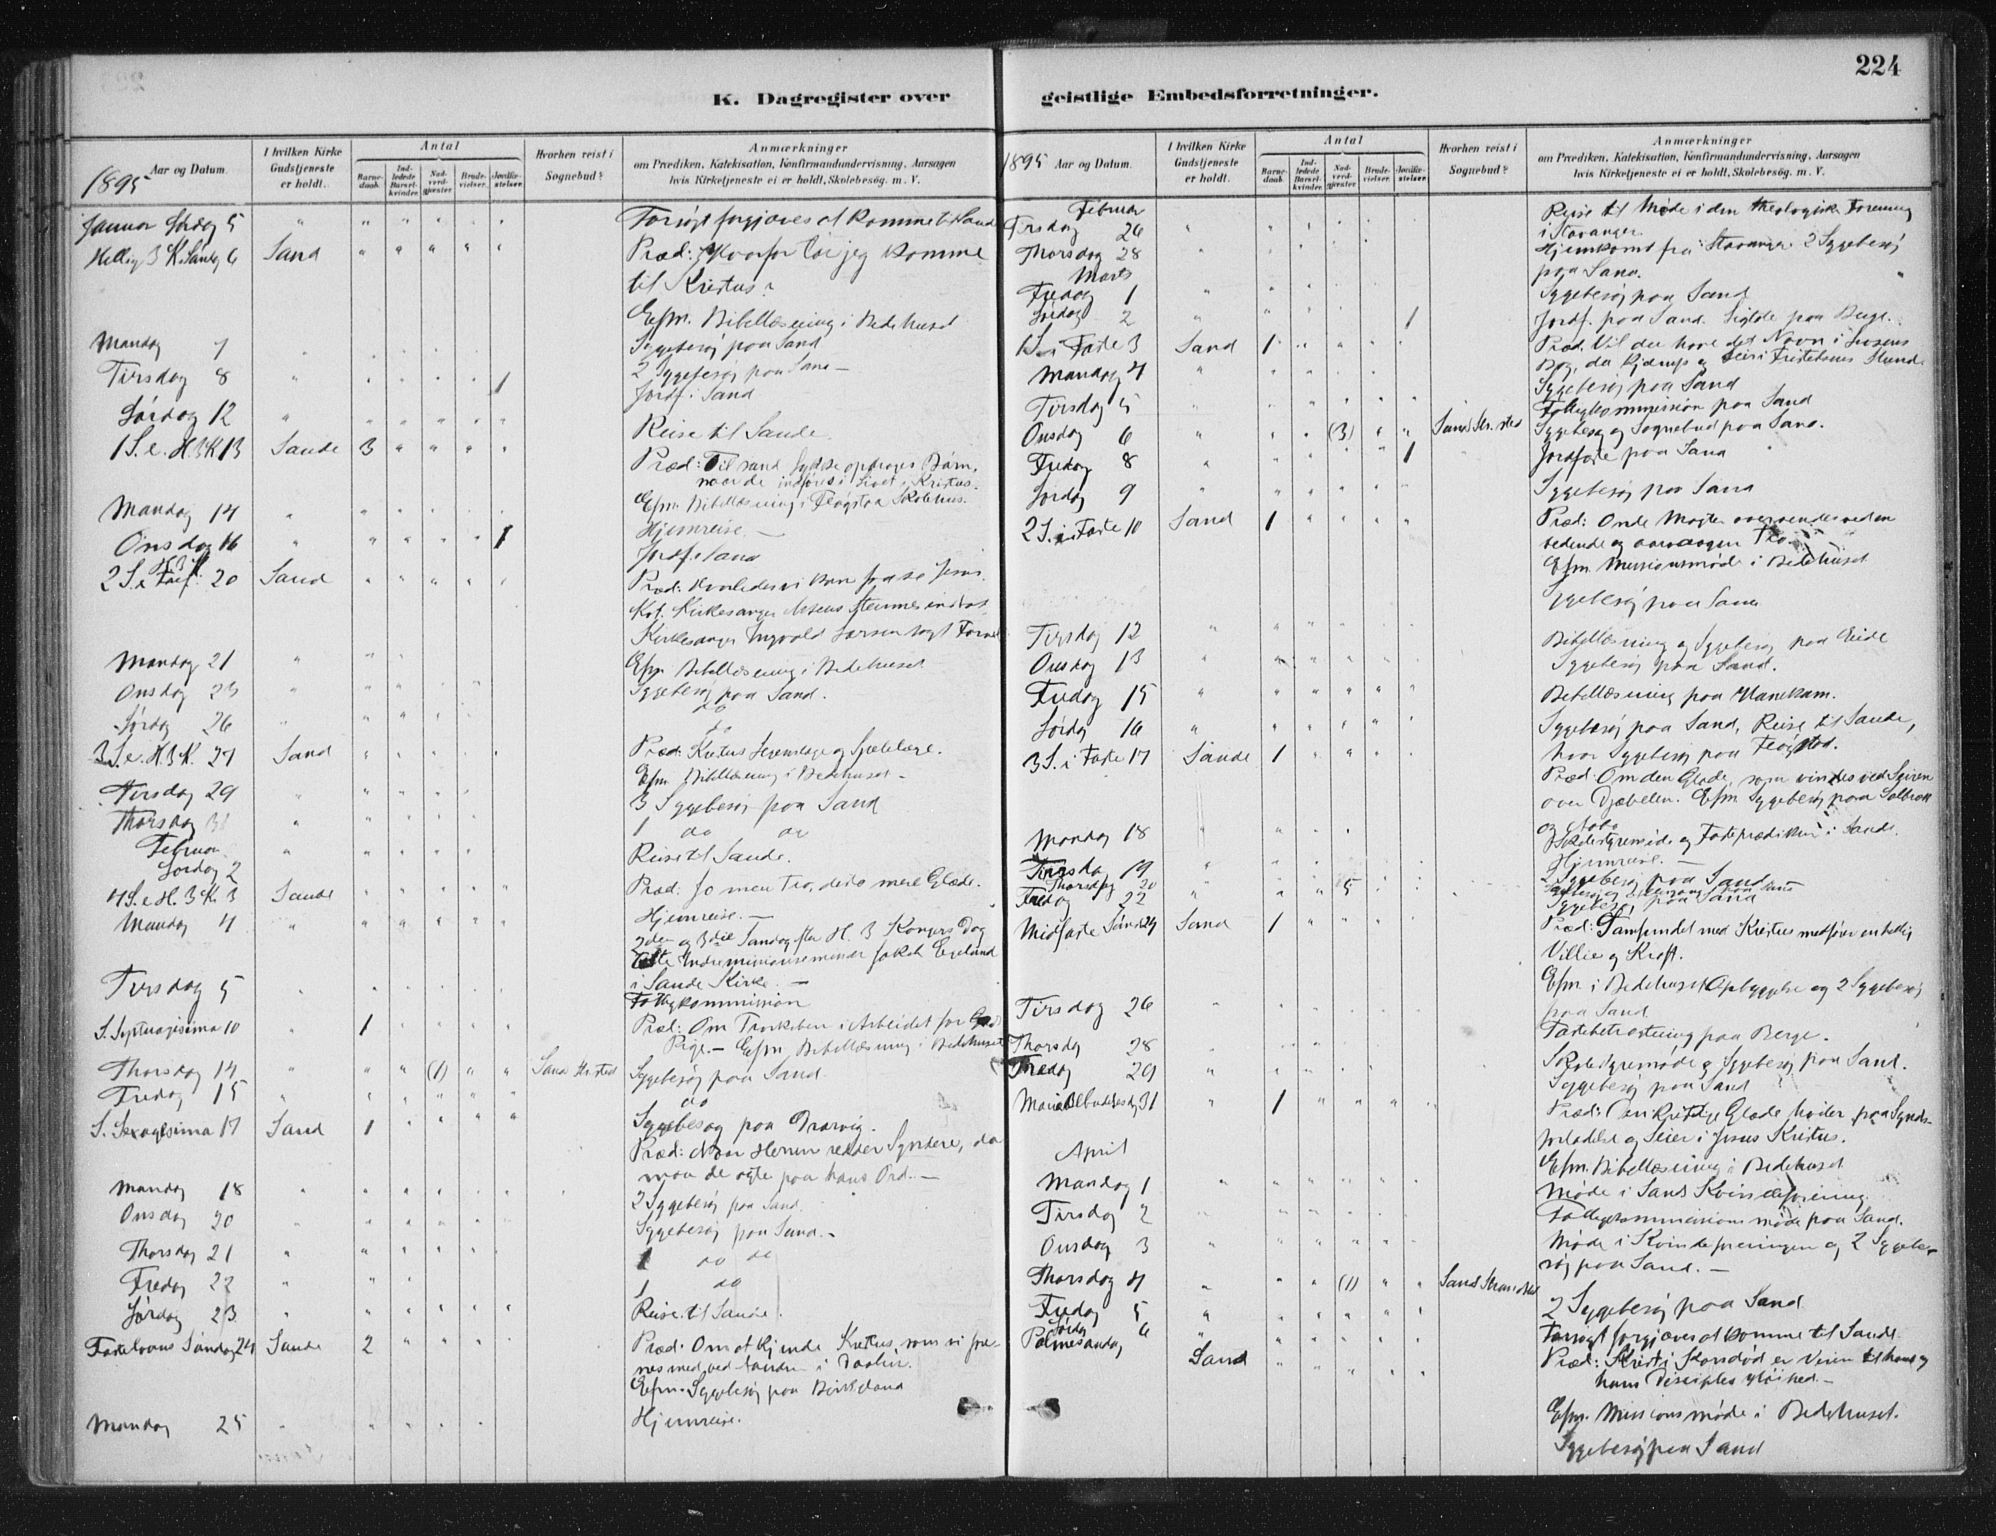 224
K. Dagregister over geistlige Embedsforretninger.
1895 Aar og Datum.
I hvilken Kirke Gudstjeneste er holdt.
Antal
Barnedaab.
Indledede Barselkvinder.
Nadverdgjester
Brudevielser.
Jordfæstelser.
Hvorhen reist i Sognebud?
Anmærkninger
om Prædiken, Katekisation, Konfirmandundervisning, Aarsagen
hvis Kirketjeneste ei er holdt, Skolebesøg. m. V.
Januar Lørdag 5 Forsøgt forgjæves at komme til Sande
Hellig 3 K. Søndag 6 Sand Præd: Hvorfor tør jeg komme
til Kristus?
Efm. Bibellæsning i Bedehuset
Mandag 7 Sygebesøg paa Sand
Tirsdag 8 1 2 Sygebesøg paa Sand
Jordf. i Sand
Lørdag 12 Reise til Sande.
1 S. e. H.3K. 13 Sande 3 Præd: Til sand Lykke opdrages Børn,
naar de indføres i Livet i Kristus.
Efm. Bibellæsning i Fløgstad Skolehus.
Mandag 14 Hjemreise.
Onsdag 16 1 Jordf. i Sand
2 S. e. H.3K. 20 Sand Præd: Hvorledes vi kan
Kirkesanger Ingvald Larsen
Efm. Bibellæsning i Bedehuset
Mandag 21 Sygebesøg paa Sand.
Onsdag 23 do
Lørdag 26 do
3 S. e. H.3K. 27 Sand Præd: Kristus Legemslæge og Sjælelæge.
Efm. Bibellæsning i Bedehuset
Tirsdag 29 3 Sygebesøg paa Sand
Thorsdag 31 1 do do
Februar
Lørdag 2 Reise til Sande.
4 S. e. H. 3 K. 3 Sande Præd: Jo mere Tro, desto mere Glæde.
Mandag 4 Hjemreise.
2den og 3die Søndag efter H. 3 Kongers Dag
i Sande Kirke.
Tirsdag 5 Fattigkommission
S. Septuagesima 10 1 Præd: Om Troskaben i Arbeidet for Guds
Rige. Efm. Bibellæsning i Bedehuset
Thorsdag 14 (1) Sand Str.sted Sygebesøg paa Sand
Fredag 15 do
Sygebesøg paa Drarvig.
S. Sexagesima 17 Sand 1 Præd: Naar Herren redder Syndere, da
maa de agte paa hans Ord.
Mandag 18 2 Sygebesøg paa Sand.
Onsdag 20 Sygebesøg paa Sand.
Thorsdag 21 1 do do
Fredag 22 1 do
Lørdag 23 Reise til Sande.
Fastelavns Søndag 24 Sande 2 Præd: Om at kjende Kristus, som vi
Efm. Sygebesøg paa Birkeland
Mandag 25 Hjemreise.
1895 Aar og Datum.
I hvilken Kirke Gudstjeneste er holdt.
Antal
Barnedaab.
Indledede Barselkvinder.
Nadverdgjester
Brudevielser.
Jordfæstelser.
Hvorhen reist i Sognebud?
Anmærkninger
om Prædiken, Katekisation, Konfirmandundervisning, Aarsagen
hvis Kirketjeneste ei er holdt, Skolebesøg. m. V.
Februar
Tirsdag 26 Reise til Møde i den theologiske Forening
i Stavanger.
Thorsdag 28 Hjemkomst fra Stavanger 2 Sygebesøg
paa Sand.
Marts
Fredag 1 Sygebesøg paa Sand
Lørdag 2 1 Jordf. paa Sand.
1 S. i Faste 3 Sand 1 Præd. Vil du have dit Navn i Livsens
Bog, da kjæmp og seir i Fristelsens Stund
Mandag 4 Sygebesøg paa Sand
Tirsdag 5 Fattigkommission paa Sand
Onsdag 6 (3) Sand Str.sted Sygebesøg og Sognebud paa Sand.
Fredag 8 1 Jordfæste paa Sand
Lørdag 9 Sygebesøg paa Sand
2 S. i Faste 10 Sand 1 Præd: Onde Magter overvindes ved en
bedende og aarvaagen Tro.
Efm. Missionsmøde i Bedehuset
Sygebesøg paa Sand
Tirsdag 12 Bibellæsning og Sygebesøg paa Eide
Onsdag 13 Sygebesøg paa Sand.
Fredag 15 Bibellæsning paa Hanekam.
Lørdag 16 Sygebesøg paa Sand, Reise til Sande,
hvor Sygebesøg paa Fløgstad.
3 S. i Faste 17 Sande 1 Præd: Om den Glæde, som vindes ved Seiren
over Djævelen. Efm. Sygebesøg paa
Mandag 18 Skolestyremøde og Fasteprædiken i Sande.
Hjemreise.
Tirsdag 19 2 Sygebesøg paa Sand
Thorsdag 20 5
Fredag 22 Sygebesøg paa Sand
Midfaste Søndag 24 Sand 1 Præd: Samfundet med Kristus medfører en hellig
Villie og Kraft.
Efm. i Bedehuset Opbyggelse og 2 Sygebesøg
paa Sand
Tirsdag 26 Fastebetragtning paa Berge.
Thorsdag 28 Skolestyremøde og Sygebesøg paa Sand.
Fredag 29 Sygebesøg paa Sand
Mariæ Bebudelsesdag 31 1 Præd: Den kristelige Glæde hviler paa Synds-
forladelse og Seier i Jesus Kristus.
Efm. Bibellæsning i Bedehuset
April
Mandag 1 Møde i Sands Kvindeforening.
Tirsdag 2 Fattigkommissionsmøde paa Sand.
Onsdag 3 Møde i Kvindeforeningen og 2 Sygebe-
søg paa Sand.
Thorsdag 4 (1) Sand Strandsted
Fredag 5 2 Sygebesøg paa Sand
Lørdag 6 Forsøgt forgjæves at komme til Sande
Palmesøndag Sand Præd: Kristi Korsdød er Veien til hans og
hans Disciples Høihed.
Efm. Missionsmøde i Bedehuset.
Sygebesøg paa Sand